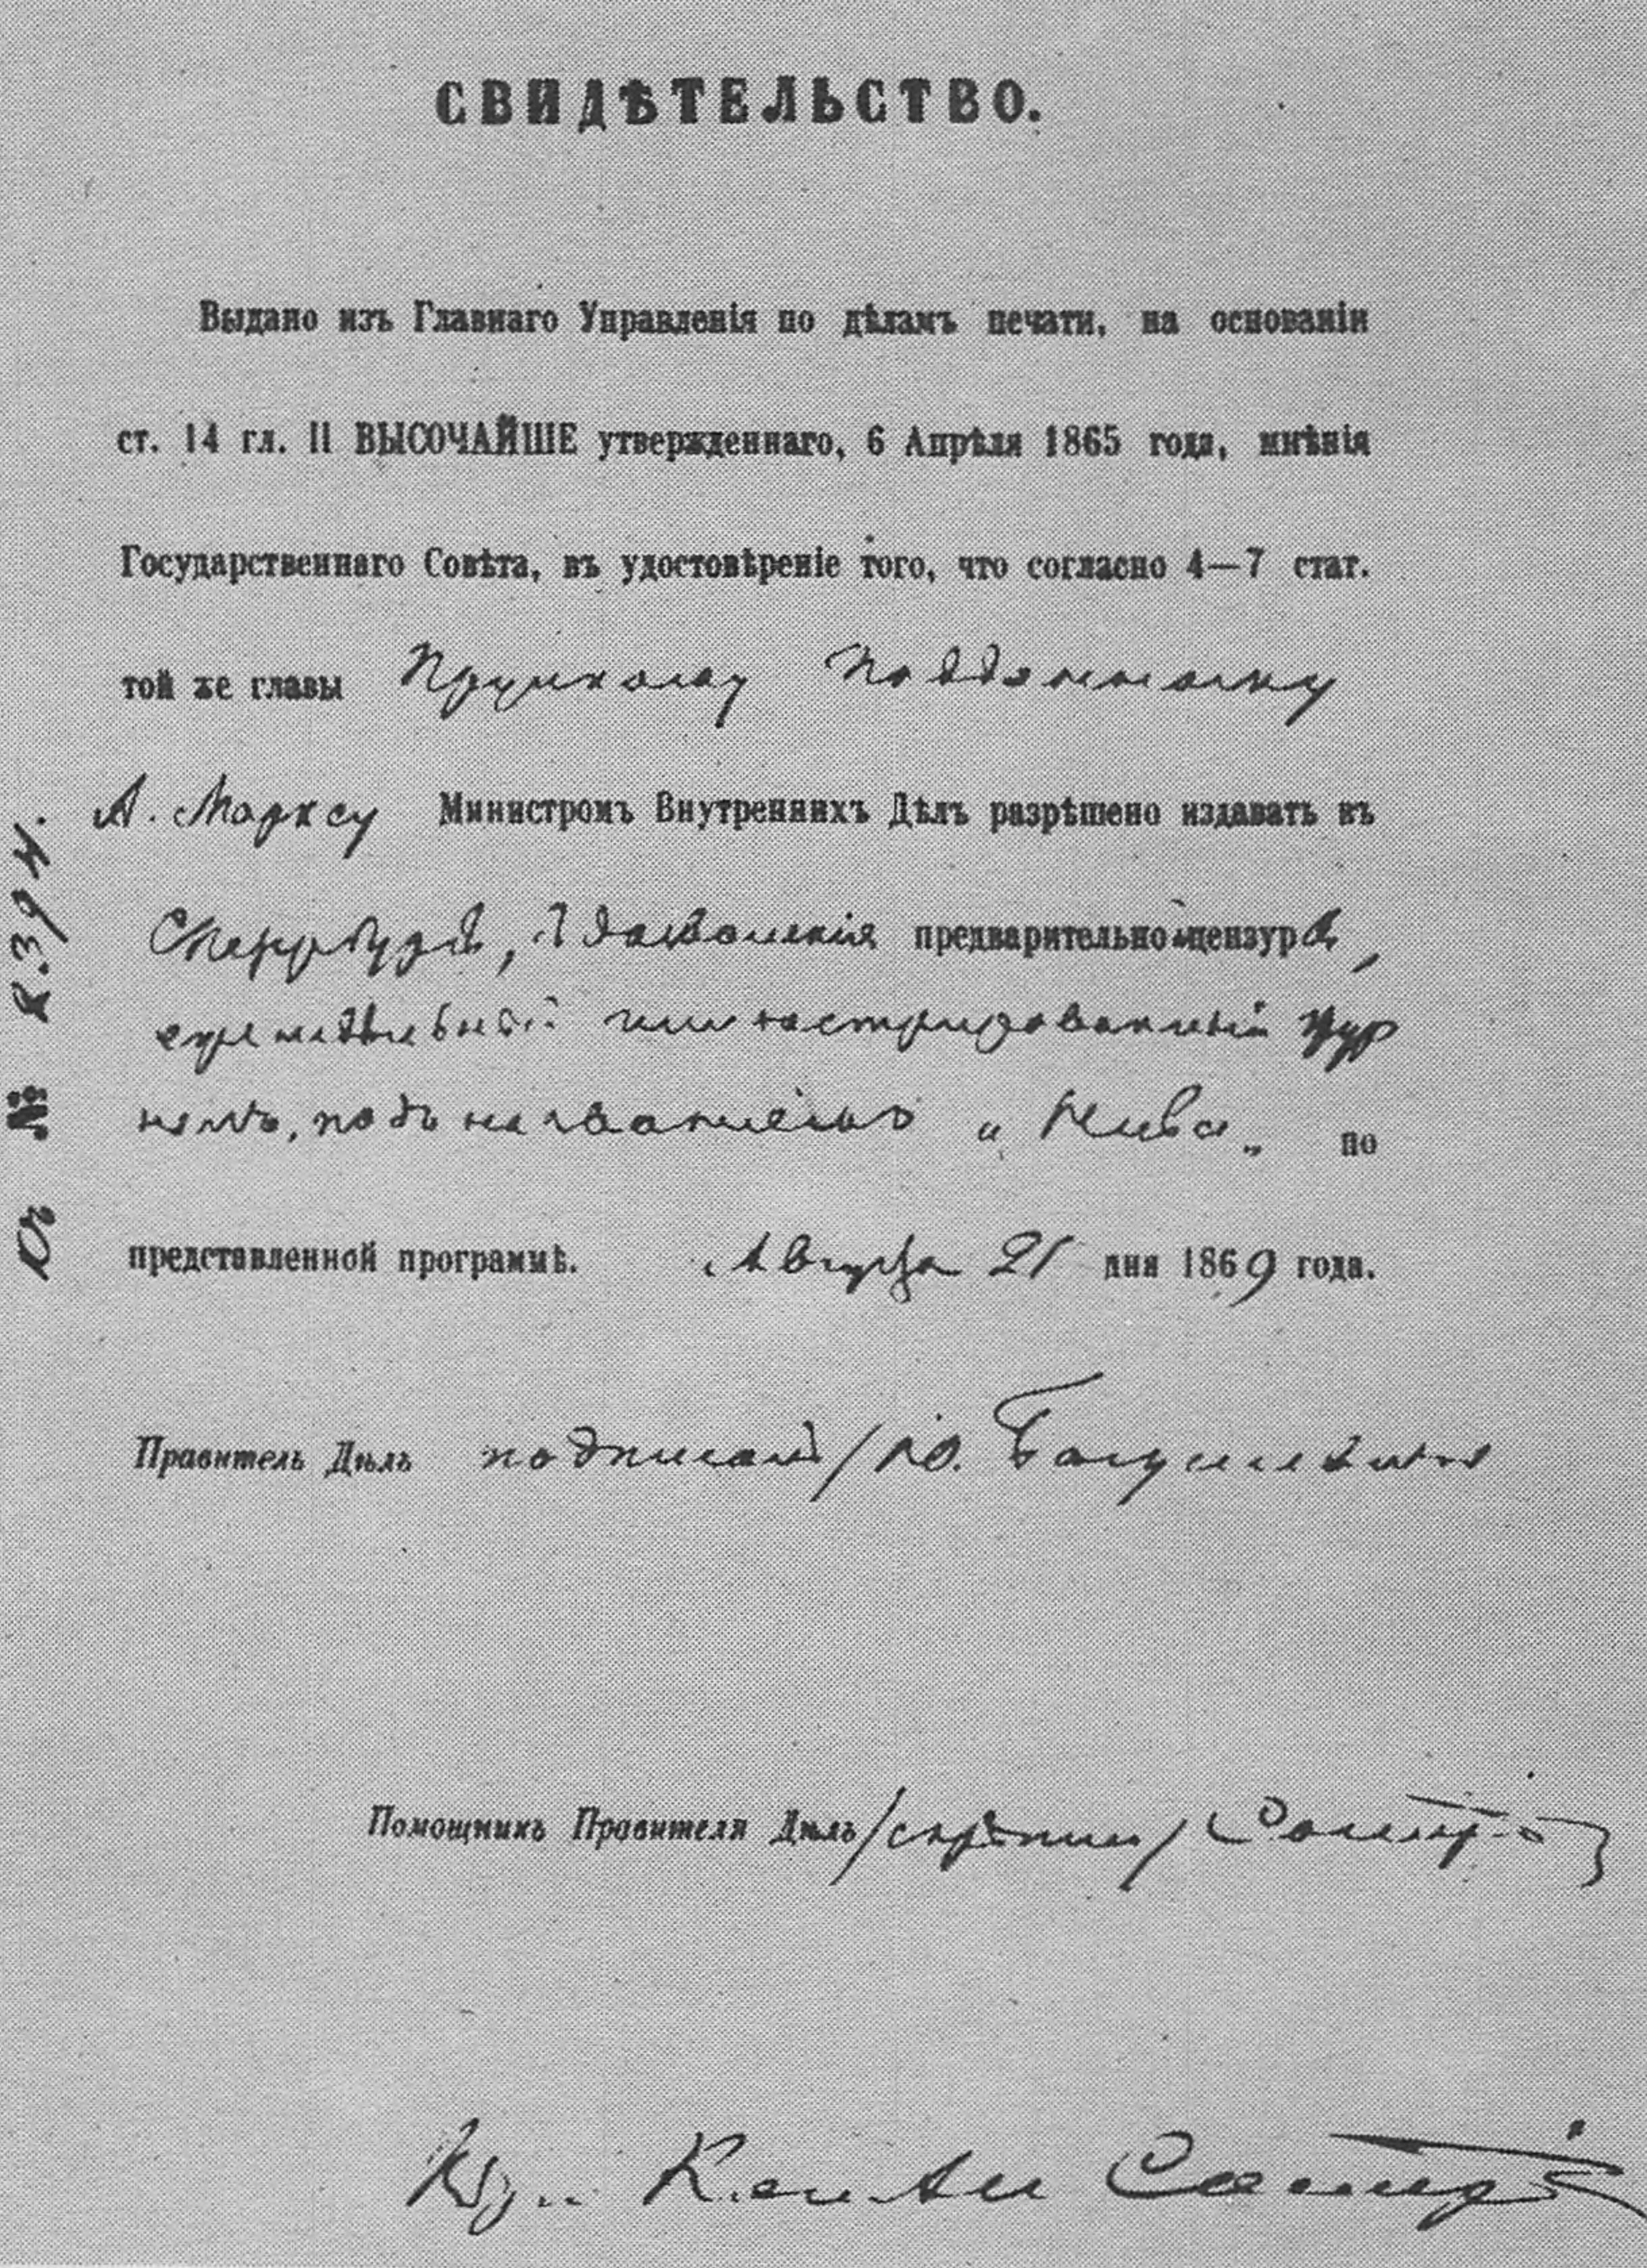 СВИДѢТЕЛЬСТВО.
Выдано изъ Главнаго Управленія по дѣламъ печати, на основаніи
ст. 14 гл. II ВЫСОЧАЙШЕ утвержденнаго, 6 Апрѣля 1865 года, мнѣнія
Государственнаго Совѣта, въ удостовѣреніе того, что согласно 4—7 стат.
той же главы Прускому подданному
А. Марксу Министромъ Внутреннихъ Дѣлъ разрѣшено издавать въ
дозволенія предварительной цензуры,
еженедѣльный иллюстрированный жур
налъ, подъ названіемъ „Нива„ по
представленной программѣ. Августа 21 дня 1869 года.
Правитель Дѣлъ подписалъ / Ю. Богушевичъ
Помощникъ Правителя Дѣлъ / скрѣпилъ /
Къ №